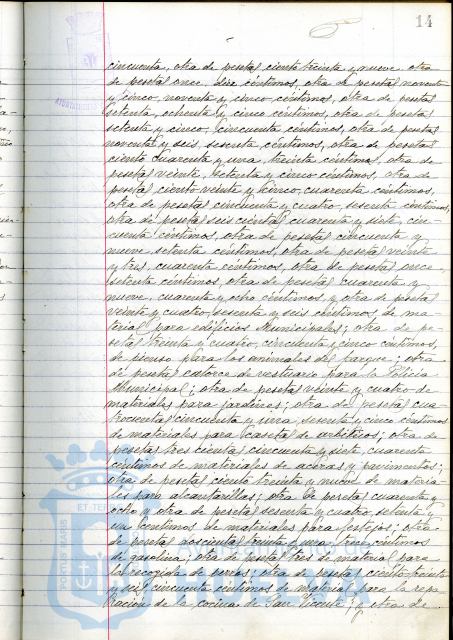 14
cincuenta, otra de pesetas ciento treinta y nueve, otra
de pesetas once, diez céntimos, otra de pesetas noventa
y cinco, noventa y cinco céntimos, otra de pesetas
setenta, ochenta y cinco céntimos, otra de pesetas
setenta y cinco, cincuenta céntimos, otra de pesetas
noventa y seis, sesenta céntimos, otra de pesetas
ciento cuarenta y una, treinta céntimos, otra de
pesetas veinte, setenta y cinco céntimos, otra de
pesetas ciento veinte y cinco, cuarenta céntimos,
otra de pesetas cincuenta y cuatro, sesenta céntimos,
otra de pesetas seiscientas cuarenta y siete, cin-
cuenta céntimos, otra de pesetas cincuenta y
nueve, setenta céntimos, otra de pesetas veinte
y tres, cuarenta céntimos, otra de pesetas once,
setenta céntimos, otra de pesetas cuarenta y
nueve, cuarenta y ocho céntimos, y otra de pesetas
veinte y cuatro, sesenta y seis céntimos de ma-
terial para edificios Municipales; otra de pe-
setas treinta y cuatro, cincuenta y cinco céntimos,
de pienso para los animales del parque; otra
de pesetas catorce de vestuario para la Policia
Municipal; otra de pesetas veinte y cuatro de
materiales para jardines; otra de pesetas cua-
trocientas cincuenta y una, sesenta y cinco céntimos
de materiales para casetas de arbitrios; otra de
pesetas trescientas cincuenta y siete, cuarenta
céntimos de materiales de aceras y pavimentos;
otra de pesetas ciento treinta y nueve de materia-
les para alcantarillas; otra de pesetas cuarenta y
ocho y otra de pesetas sesenta y cuatro, setenta y
un céntimos de materiales para festejos; otra
de pesetas doscientas treinta y una, trece céntimos
de gasolina; otra de pesetas tres de material para
la recogida de perros; otra de pesetas ciento treinta
y seis, cincuenta céntimos de material para la repa-
ración de la cocina de San Vicente; y otra de